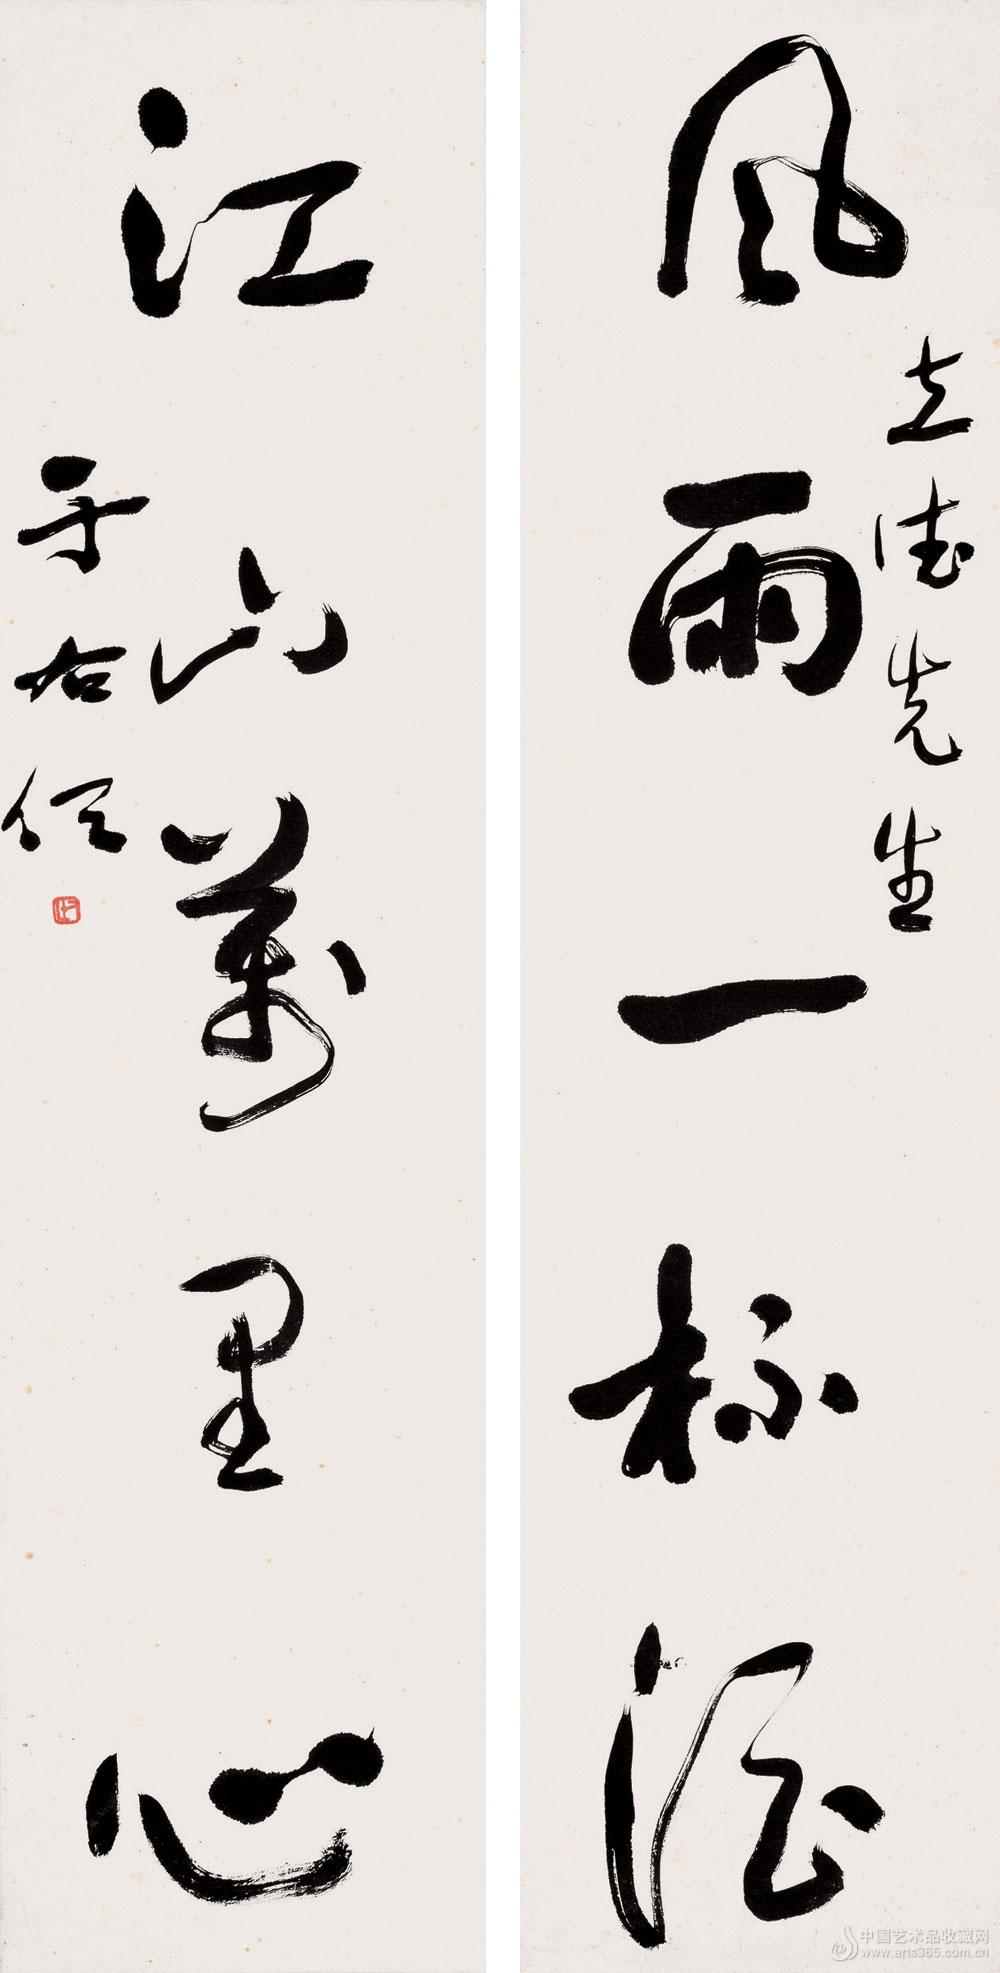 风雨一杯酒
立德先生
江山萬里心
于右任
中国艺术品收藏网
www.arts365.com.cn